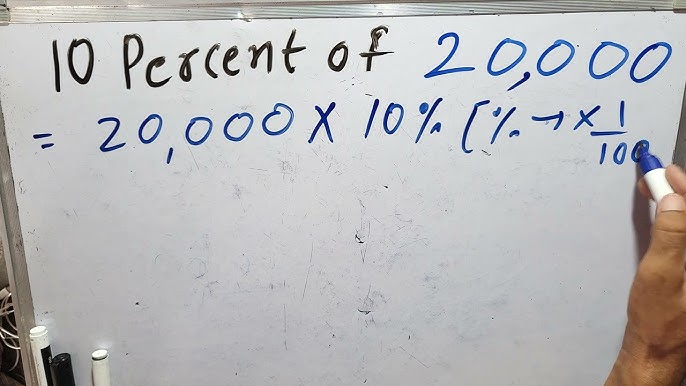 10 Percent of 20,000
= 20,000 × 10% [% → × 1/100